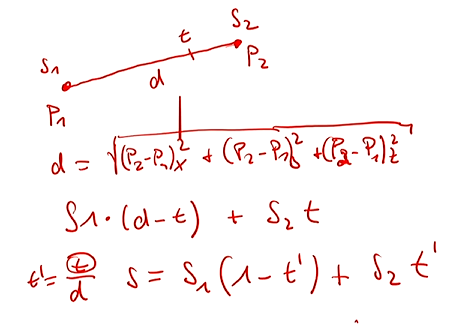 t S₂
S₁ P₂
d
P₁
d = √((P₂-P₁)²ₓ + (P₂-P₁)²ᵧ + (P₂-P₁)²_z)
S1·(d-t) + S₂ t
t' = t/d S = S₁(1-t') + S₂ t'